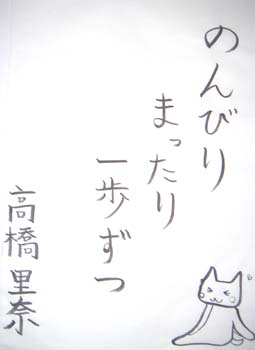 のんびり
まったり
一歩ずつ
高橋里奈